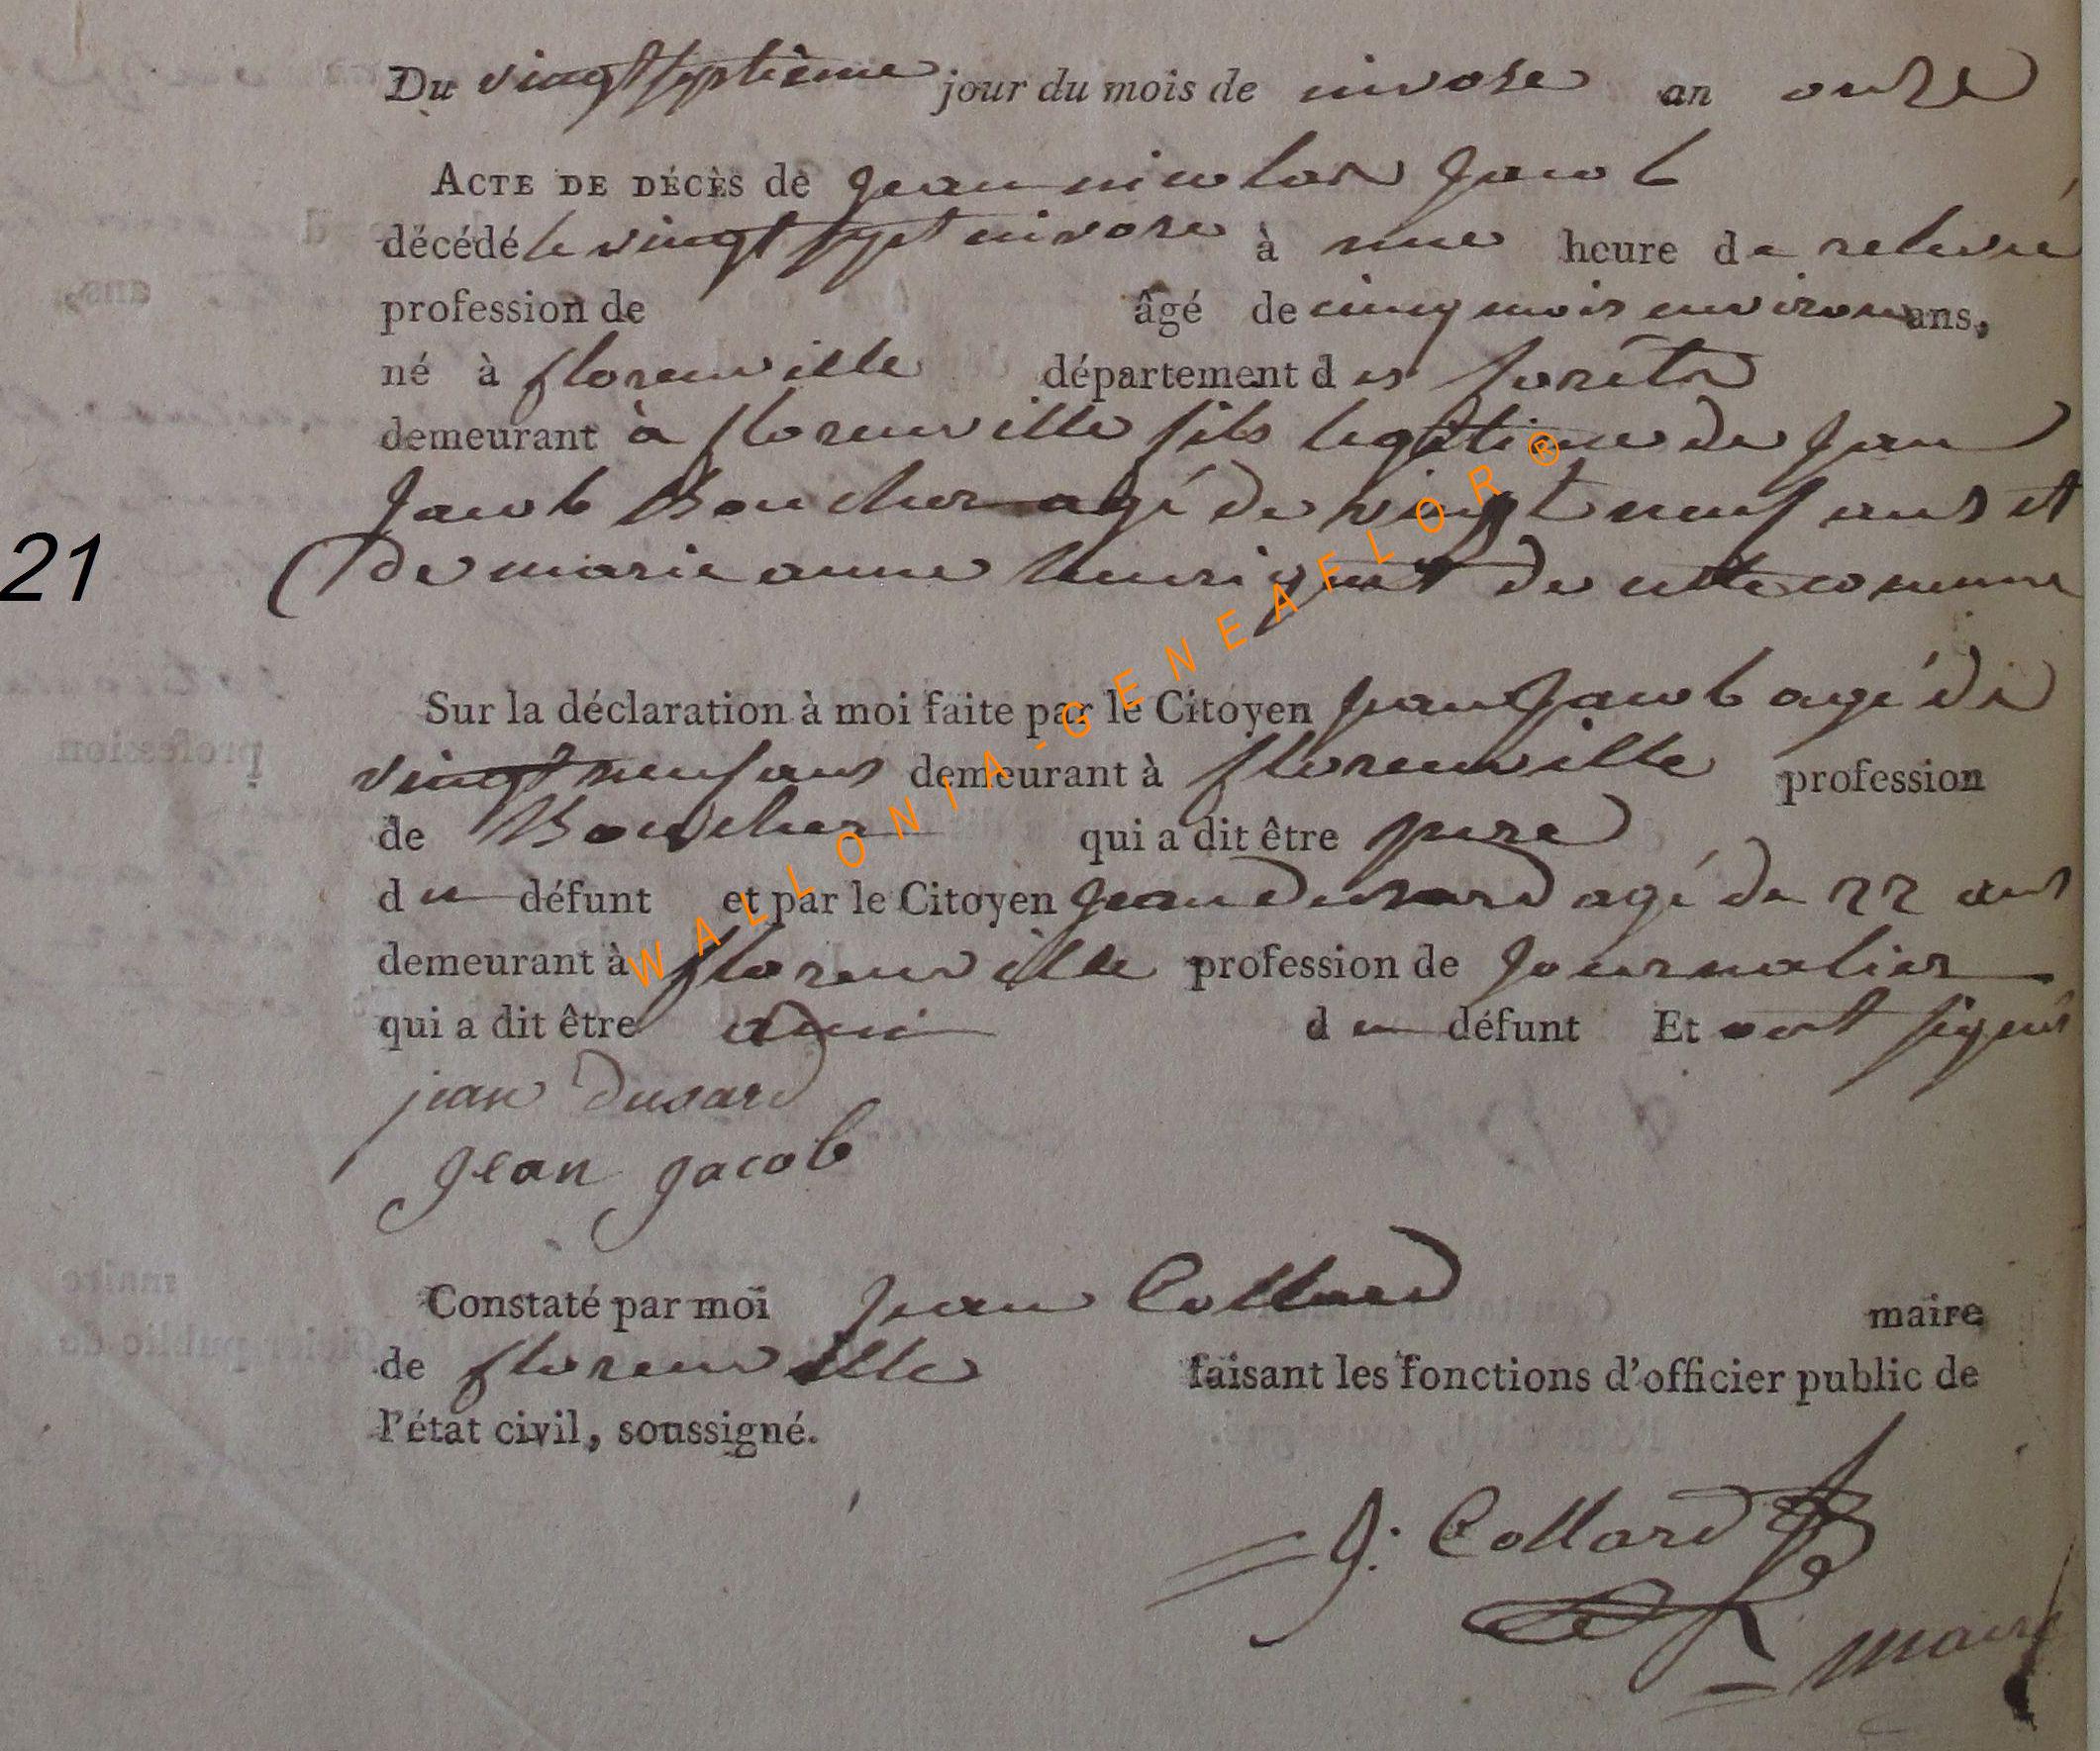 Du vingtseptième jour du mois de nivose an onze
ACTE DE DÉCÈS de jean nicolas Jacob
décédé le vingt sept nivose à une heure de relevée
profession de âgé de cinq mois environ ans,
né à florenville département des forêts
demeurant à florenville fils legitime de jean
Jacob Boucher agé de vingt neuf ans et
de marie anne de cette commune
21
Sur la déclaration à moi faite par le Citoyen jean Jacob agé de
vingt neuf ans demeurant à florenville profession
de Boucher qui a dit être pere
du défunt et par le Citoyen jean Dusard agé de 22 ans
demeurant à florenville profession de journalier
qui a dit être ami du défunt Et ont signé
jean Dusard
jean jacob
Constaté par moi jean Collard maire
de florenville faisant les fonctions d'officier public de
l'état civil, soussigné.
J. Collard
maire
WALLONIA-GENEAFLOR ®